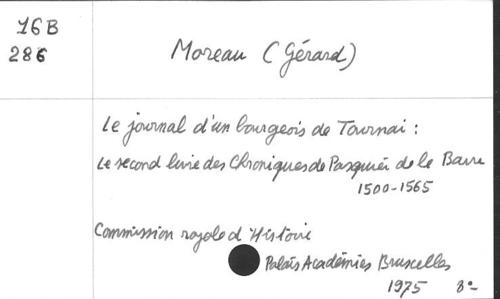 16B
286
Moreau (Gérard)
Le journal d'un bourgeois de Tournai :
Le second livre des Chroniques de Pasquier de le Barre
1500-1565
Commission royale d'Histoire
Palais Académies Bruxelles
1975 8°